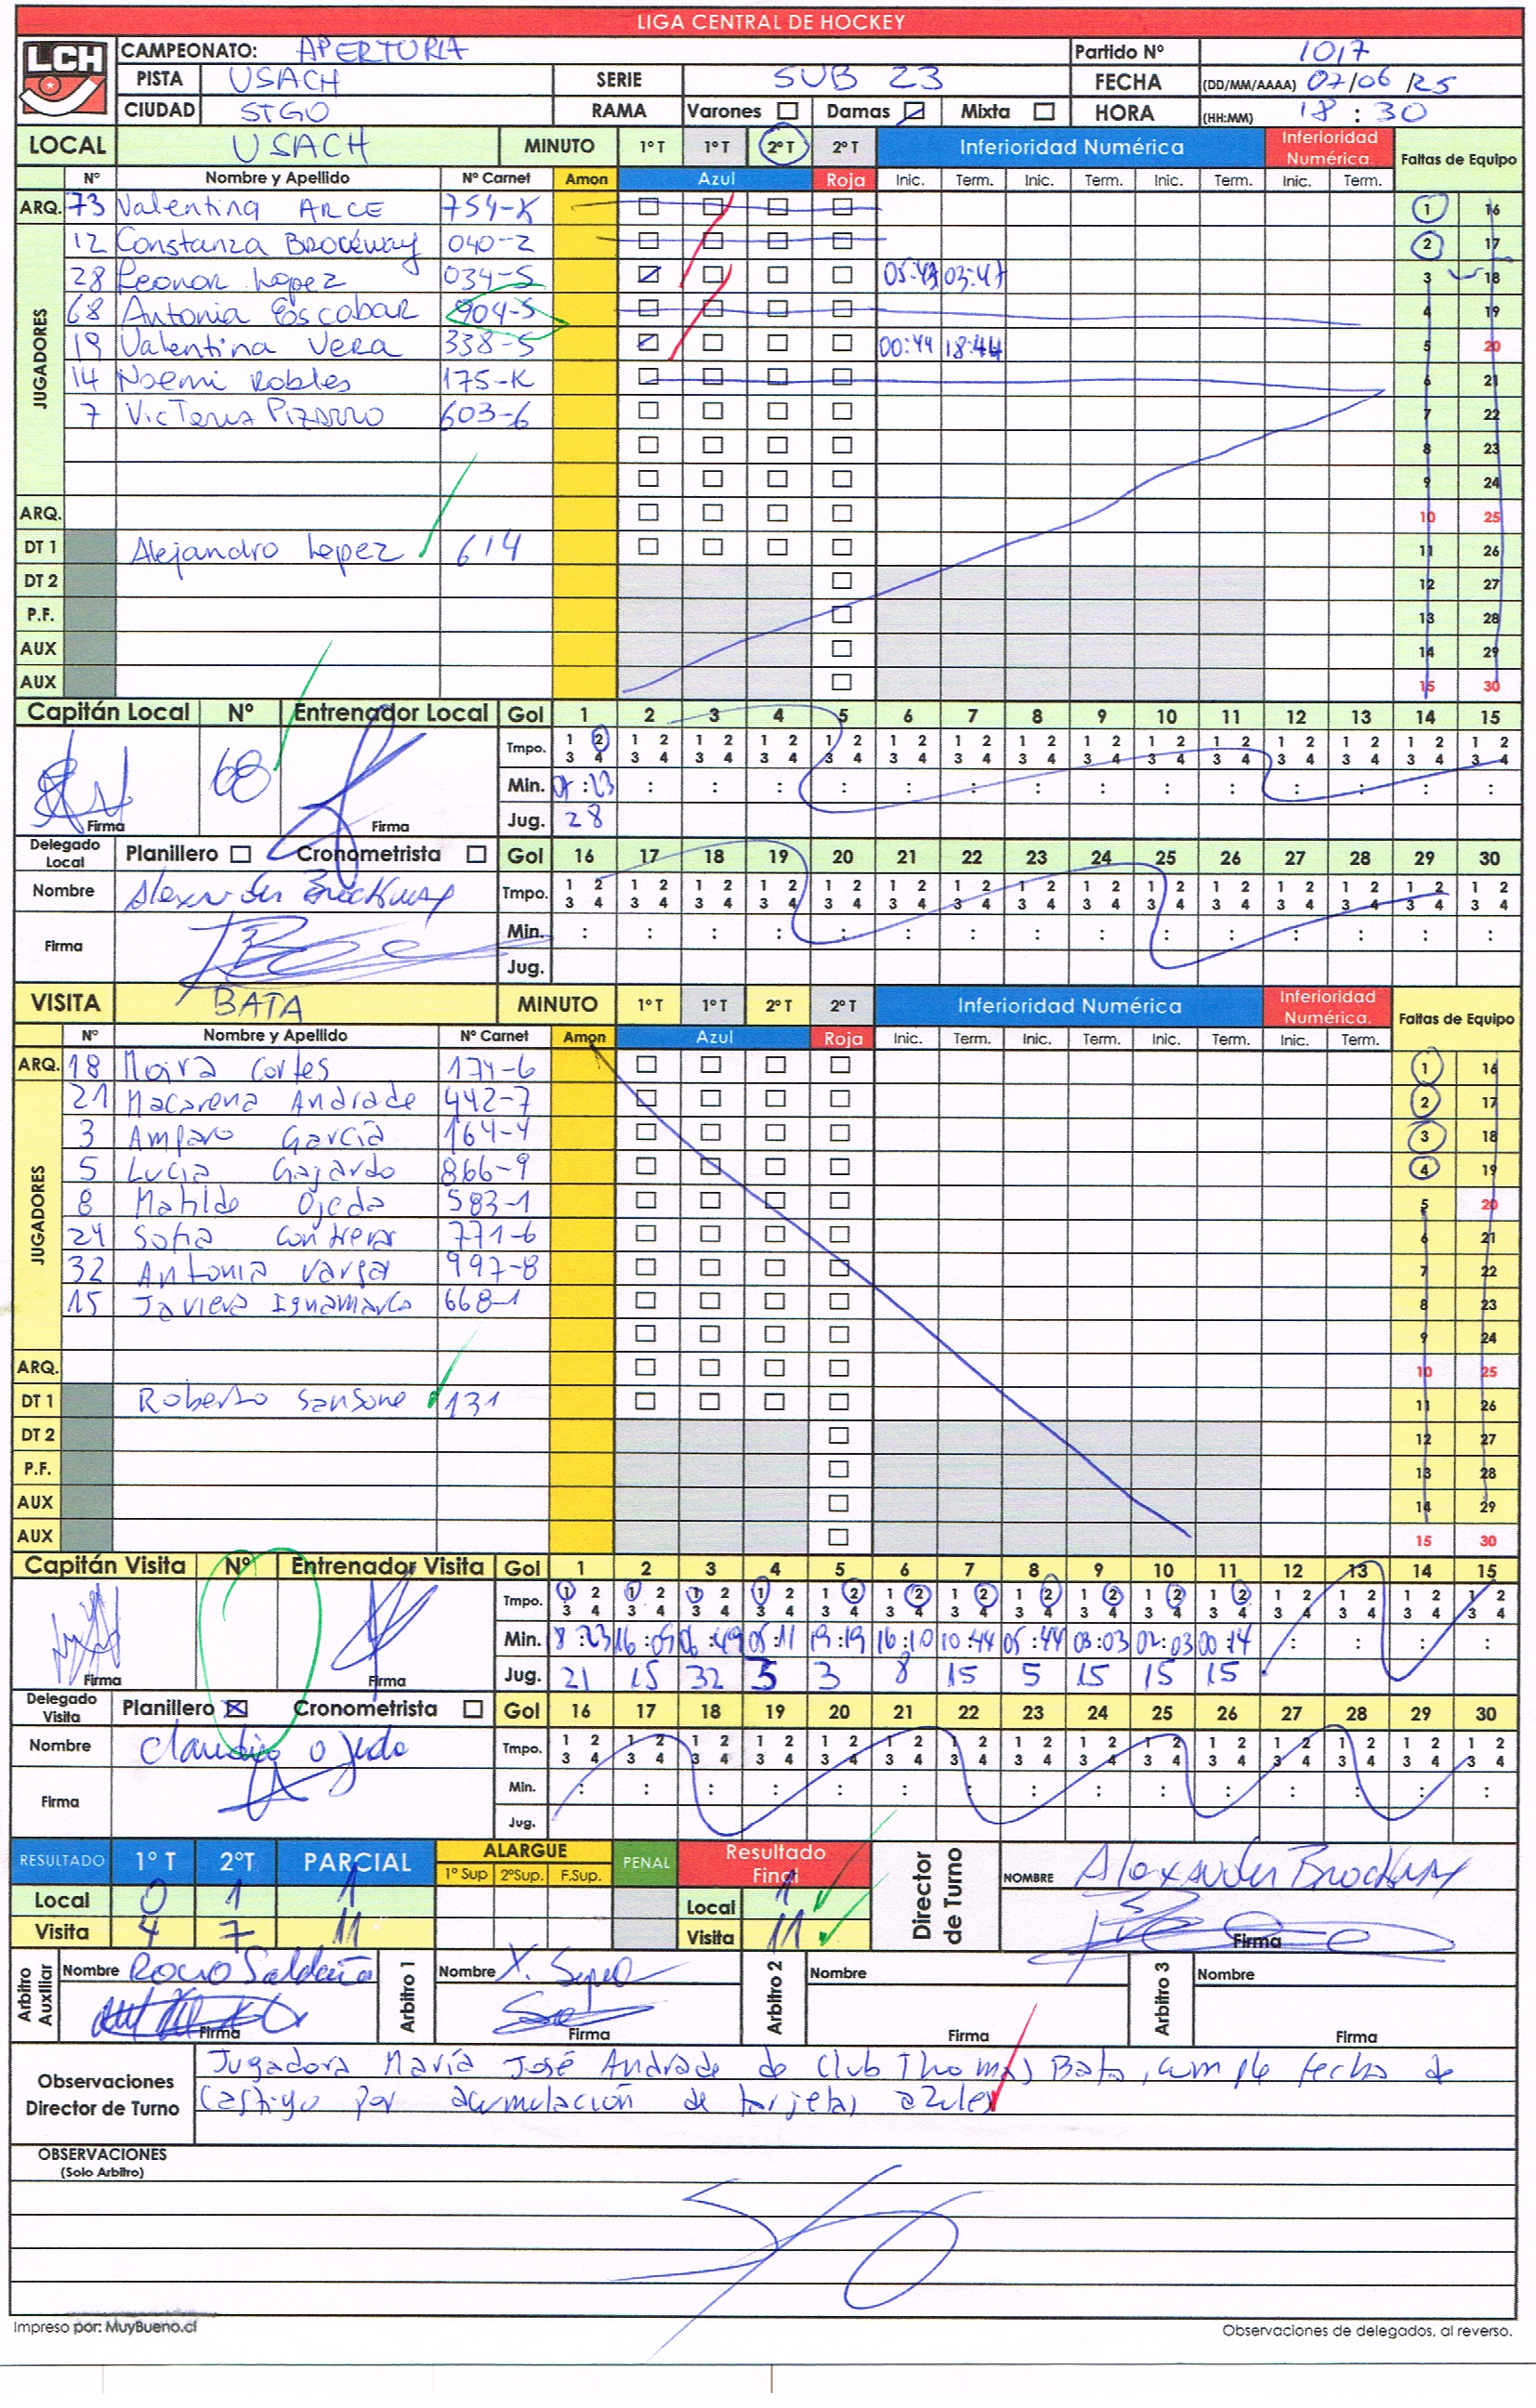 LIGA CENTRAL DE HOCKEY
LCH
CAMPEONATO: APERTURA Partido Nº 1017
PISTA USACH SERIE SUB 23 FECHA (DD/MM/AAAA) 07/06/25
CIUDAD STGO RAMA Varones Damas Mixta HORA (HH:MM) 18:30
LOCAL USACH MINUTO 1º T 1º T 2º T 2º T Inferioridad Numérica Inferioridad Numérica. Faltas de Equipo
Nº Nombre y Apellido Nº Carnet Amon Azul Roja Inic. Term. Inic. Term. Inic. Term. Inic. Term.
ARQ. 73 Valentina ARCE 754-K 1 16
JUGADORES
12 Constanza Brockway 040-2 2 17
28 Leonor Lopez 034-5 05:47 03:47 3 18
68 Antonia Escobar 904-5 4 19
19 Valentina Vera 338-5 00:44 18:44 5 20
14 Noemi Robles 175-K 6 21
7 Victoria Pizarro 603-6 7 22
8 23
9 24
ARQ. 10 25
DT 1 Alejandro Lopez 614 11 26
DT 2 12 27
P.F. 13 28
AUX 14 29
AUX 15 30
Capitán Local Nº Entrenador Local Gol 1 2 3 4 5 6 7 8 9 10 11 12 13 14 15
68 Tmpo. 1 2 1 2 1 2 1 2 1 2 1 2 1 2 1 2 1 2 1 2 1 2 1 2 1 2 1 2 1 2
3 4 3 4 3 4 3 4 3 4 3 4 3 4 3 4 3 4 3 4 3 4 3 4 3 4 3 4 3 4
Min. :23 : : : : : : : : : : : : : :
Firma Firma Jug. 28
Delegado Local Planillero Cronometrista Gol 16 17 18 19 20 21 22 23 24 25 26 27 28 29 30
Nombre Alexander Brockway Tmpo. 1 2 1 2 1 2 1 2 1 2 1 2 1 2 1 2 1 2 1 2 1 2 1 2 1 2 1 2 1 2
3 4 3 4 3 4 3 4 3 4 3 4 3 4 3 4 3 4 3 4 3 4 3 4 3 4 3 4 3 4
Firma Min. : : : : : : : : : : : : : : :
Jug.
VISITA BATA MINUTO 1º T 1º T 2º T 2º T Inferioridad Numérica Inferioridad Numérica. Faltas de Equipo
Nº Nombre y Apellido Nº Carnet Amon Azul Roja Inic. Term. Inic. Term. Inic. Term. Inic. Term.
ARQ. 18 Moira Cortes 174-6 1 16
JUGADORES
21 Macarena Andrade 442-7 2 17
3 Amparo García 164-4 3 18
5 Lucia Gajardo 866-9 4 19
8 Matilde Ojeda 583-1 5 20
24 Sofia Contreras 771-6 6 21
32 Antonia Vargas 997-8 7 22
15 Javiera Ignamarco 668-1 8 23
9 24
ARQ. 10 25
DT 1 Roberto Sansone 131 11 26
DT 2 12 27
P.F. 13 28
AUX 14 29
AUX 15 30
Capitán Visita Nº Entrenador Visita Gol 1 2 3 4 5 6 7 8 9 10 11 12 13 14 15
Tmpo. 1 2 1 2 1 2 1 2 1 2 1 2 1 2 1 2 1 2 1 2 1 2 1 2 1 2 1 2 1 2
3 4 3 4 3 4 3 4 3 4 3 4 3 4 3 4 3 4 3 4 3 4 3 4 3 4 3 4 3 4
Min. 8:23 16:09 06:49 05:11 19:19 16:10 10:44 05:44 03:03 02:03 00:14 : : : :
Firma Firma Jug. 21 15 32 3 3 8 15 5 15 15 15
Delegado Visita Planillero Cronometrista Gol 16 17 18 19 20 21 22 23 24 25 26 27 28 29 30
Nombre Claudio Ojeda Tmpo. 1 2 1 2 1 2 1 2 1 2 1 2 1 2 1 2 1 2 1 2 1 2 1 2 1 2 1 2 1 2
3 4 3 4 3 4 3 4 3 4 3 4 3 4 3 4 3 4 3 4 3 4 3 4 3 4 3 4 3 4
Firma Min. : : : : : : : : : : : : : : :
Jug.
RESULTADO 1º T 2ºT PARCIAL ALARGUE PENAL Resultado Final Director de Turno NOMBRE Alexander Brockway
1º Sup 2ºSup. F.Sup.
Local 0 1 1 Local 1
Visita 4 7 11 Visita 11 Firma
Arbitro Auxiliar Nombre Rocio Saldaña Arbitro 1 Nombre X. Arbitro 2 Nombre Arbitro 3 Nombre
Firma Firma Firma Firma
Observaciones Director de Turno
Jugadora María José Andrade de Club Thomas Bata, cumple fecha de
Castigo por acumulación de tarjetas azules
OBSERVACIONES
(Solo Arbitro)
Impreso por: MuyBueno.cl Observaciones de delegados, al reverso.